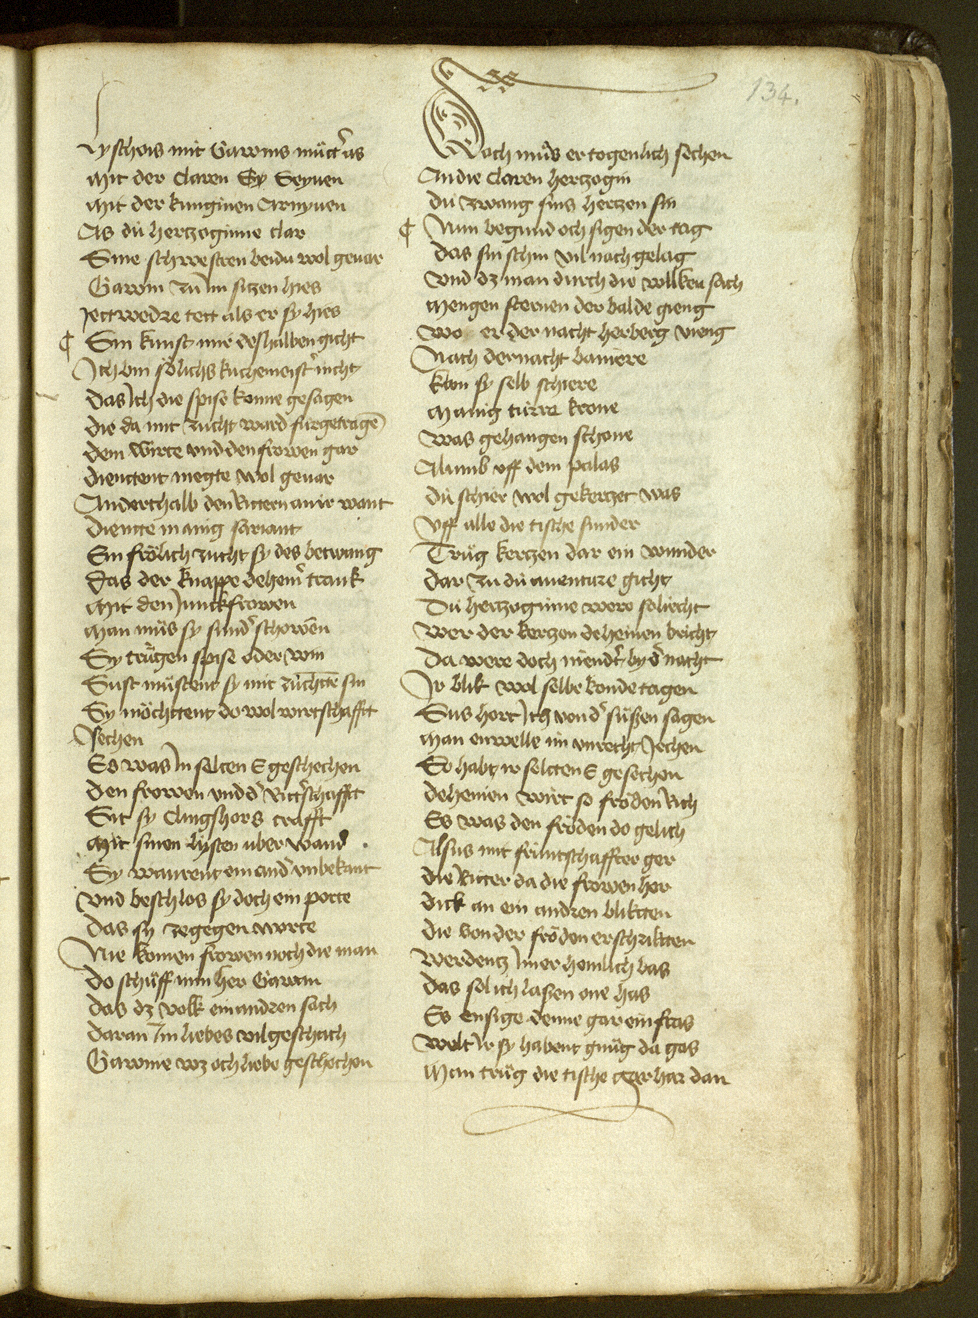 134.
Lyschois mit Gawins mutt͛ as
Mit der claren Sy Seyuen
Mit der kunginen Arnyuen
As dú hertzoginne clar
Sine schwestren beidú wol geuar
Gawin zů im sitzen hies
Jettwedre tett als er sy hies
¶ Sin kunst mir deshalben gicht
Ich bin sölichs kuchemeist͛ nicht
Das Ich die spise konne gesagen
Die da mit zucht ward fúrgetragē
Dem wirte vnd den frowen gar
Dienttent megte wol geuar
Anderthalb den Rittern an ir want
Diente manig sariant
Ein frölich zucht sy des betwang
Das der knappe dehein͛ trank
Mit den Junckfrowen
Man můs sy sund͛ schowēn
Sy trůgen spise oder win
Sust můstent sy mit zúchtē sin
Sy möchttent do wol wirtschafft
Jechen
Es was In selten E geschechen
Den frowen vnd d͛ Ritt͛schafft
Sit sy Clingshors crafft
Mit sinen lýsten vber wand
Sy warent ein and͛ vnbekant
Vnd beschlos sy doch ein porte
Das sy zegegen worte
Nie komen frowen noch die man
Do schůff min her Gawin
Das dz volk ein andren sach
Daran In liebes vil geschach
Gawine wz och liebe geschechen
Doch můs er togenlich sechen
An die claren hertzogin
Dú zwang sins hertzen sin
¶ Nun begund och sigen der tag
Das sin schin vil nach gelag
Vnd dz man durch die wolken sach
Mengen sternen der balde gieng
Wo er der nacht herberg vieng
Nach der nacht baniere
Kom sy selb schiere
Manig túrre krone
Was gehangen schone
Alumb vff dem palas
Dú schier wol gekertzet was
Vff alle die tische sunder
Trůg kertzen dar ein wunder
Dar zu dú auenture gicht
Dú hertzoginne were so liecht
Wer der kertzen deheinen bricht
Da were doch niendt͛ by d͛ nacht
Ir blik wol selbe konde tagen
Sus hort Ich von d͛ súßen sagen
Man enwelle im vnrecht Jechen
So habt ir seltten E gesechen
Deheinen wirt so fröden Rich
Es was den fröden do gelich
Alsus mit fruntschaffter ger
Die Ritter da die frowen her
Dick an ein andren blikten
Die von der fröden erschrikten
Werdentz Imer heinlich bas
Das sol ich laßen one has
Es ensige denne gar ein fras
Welt Ir sy habent gnůg da gas
Man trůg die tische gar har dan